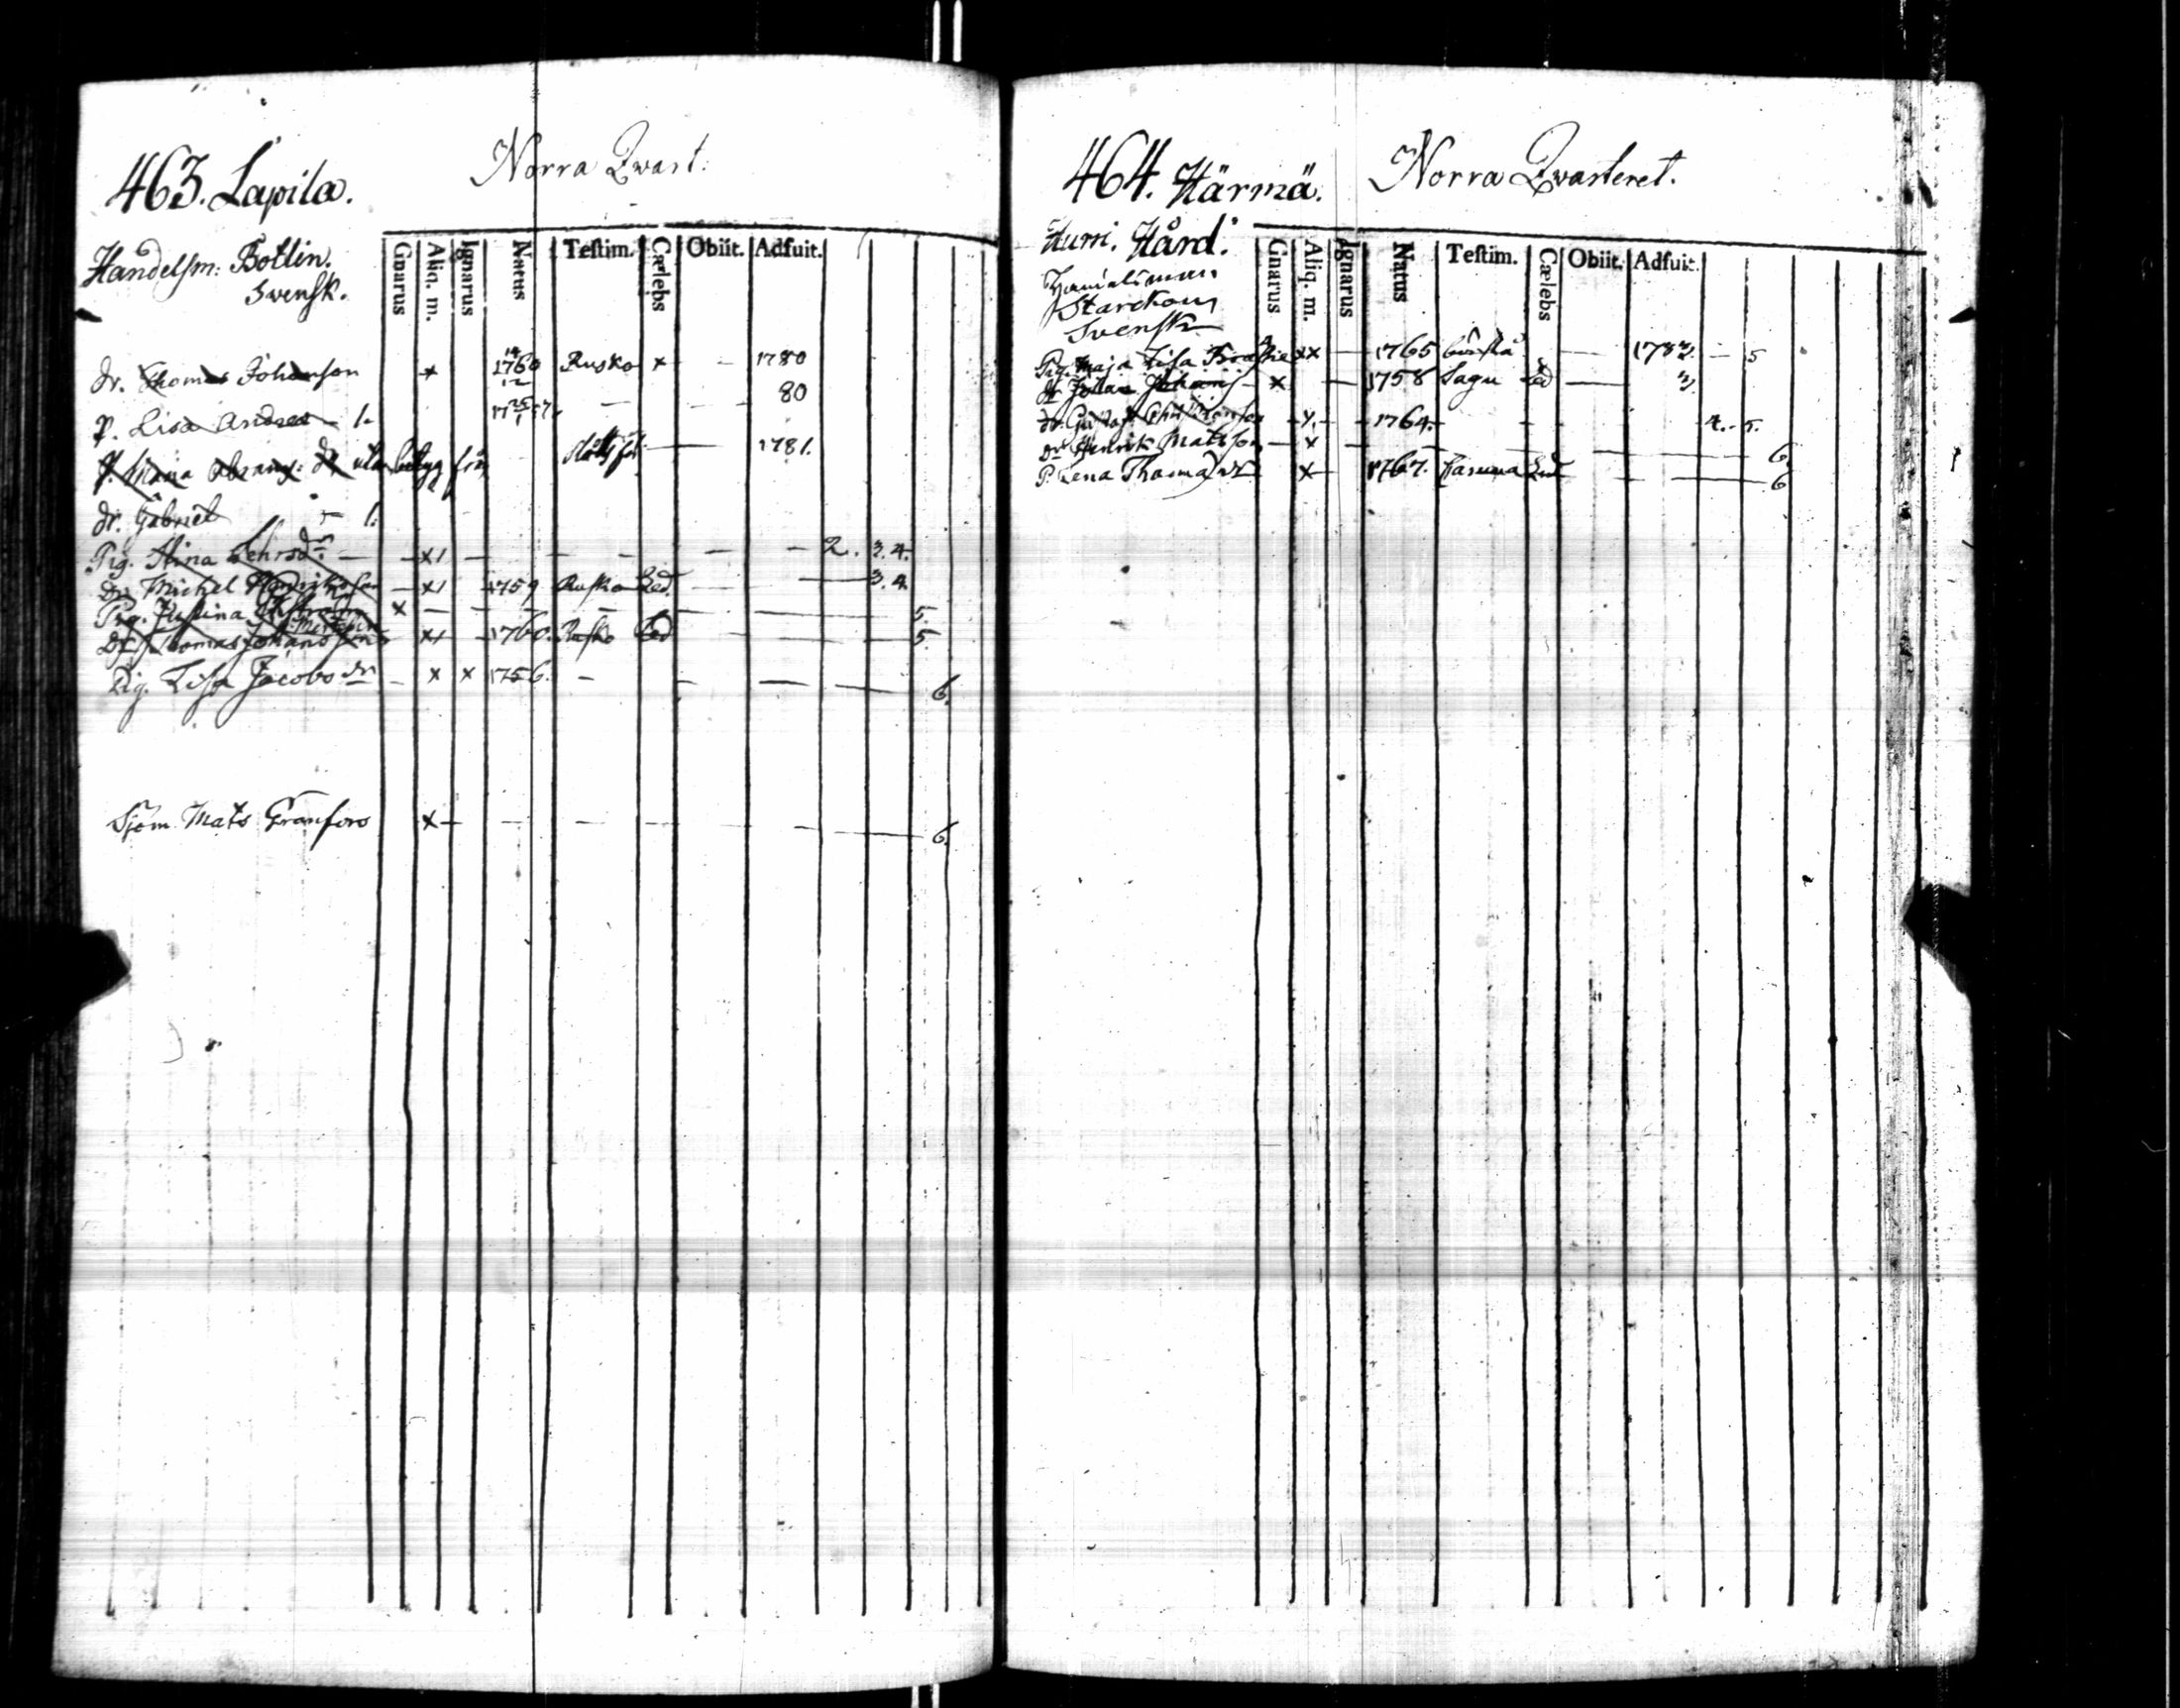 463. Lapila.
Norra Qwart:
Handelsm: Bottin.
Svensk.
Gnarus Aliq. m. Ignarus Natus Testim. Cælebs Obiit. Adfuit.
dr. Thomas Johanson × 1760 Rusko × — 1780
p. Lisa Andrea 1. — — 80
P. Maria 1781.
dr. Gabriel — 1.
Pig. Stina — ×1 — — — — — 2. 3. 4.
Dr. Michel — ×1 — 1759 Rusko Led. — — 3. 4.
Pig. Justina × — — — — — — 5.
Dr. Thomas Johansson ×1 — 1760. Rusko Led — — 5.
Pig. Lisa Jacobsdr — × × 1756. — — — — 6.
Sjöm. Mats Granfors × — — — — — — 6.
464. Härmä.
Norra Qwarteret.
Hurri. Hård.
Svensk
Gnarus Aliq. m. Ignarus Natus Testim. Cælebs Obiit. Adfuit.
Pig. Maja Lisa ×× — 1765 — 1783. — 5
dr Johan × — 1758 Sagu Led — 3
dr. Gustaf — ×. — 1764. — — — 4. - 5.
Dr Henrik Matsson — × — — — — — 6.
P. Lena Thomasdr × — 1767. Karuna Led — — 6